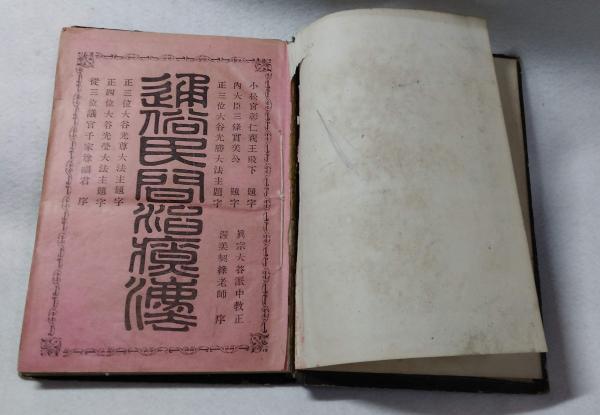 小松宮彰仁親王殿下 題字
內大臣三條實美公 題字
正三位大谷光勝大法主題字
眞宗大谷派中敎正
渥美契緣老師 序
通俗民間治療法
正三位大谷光尊大法主題字
正四位大谷光瑩大法主題字
從三位議官千家尊福君 序